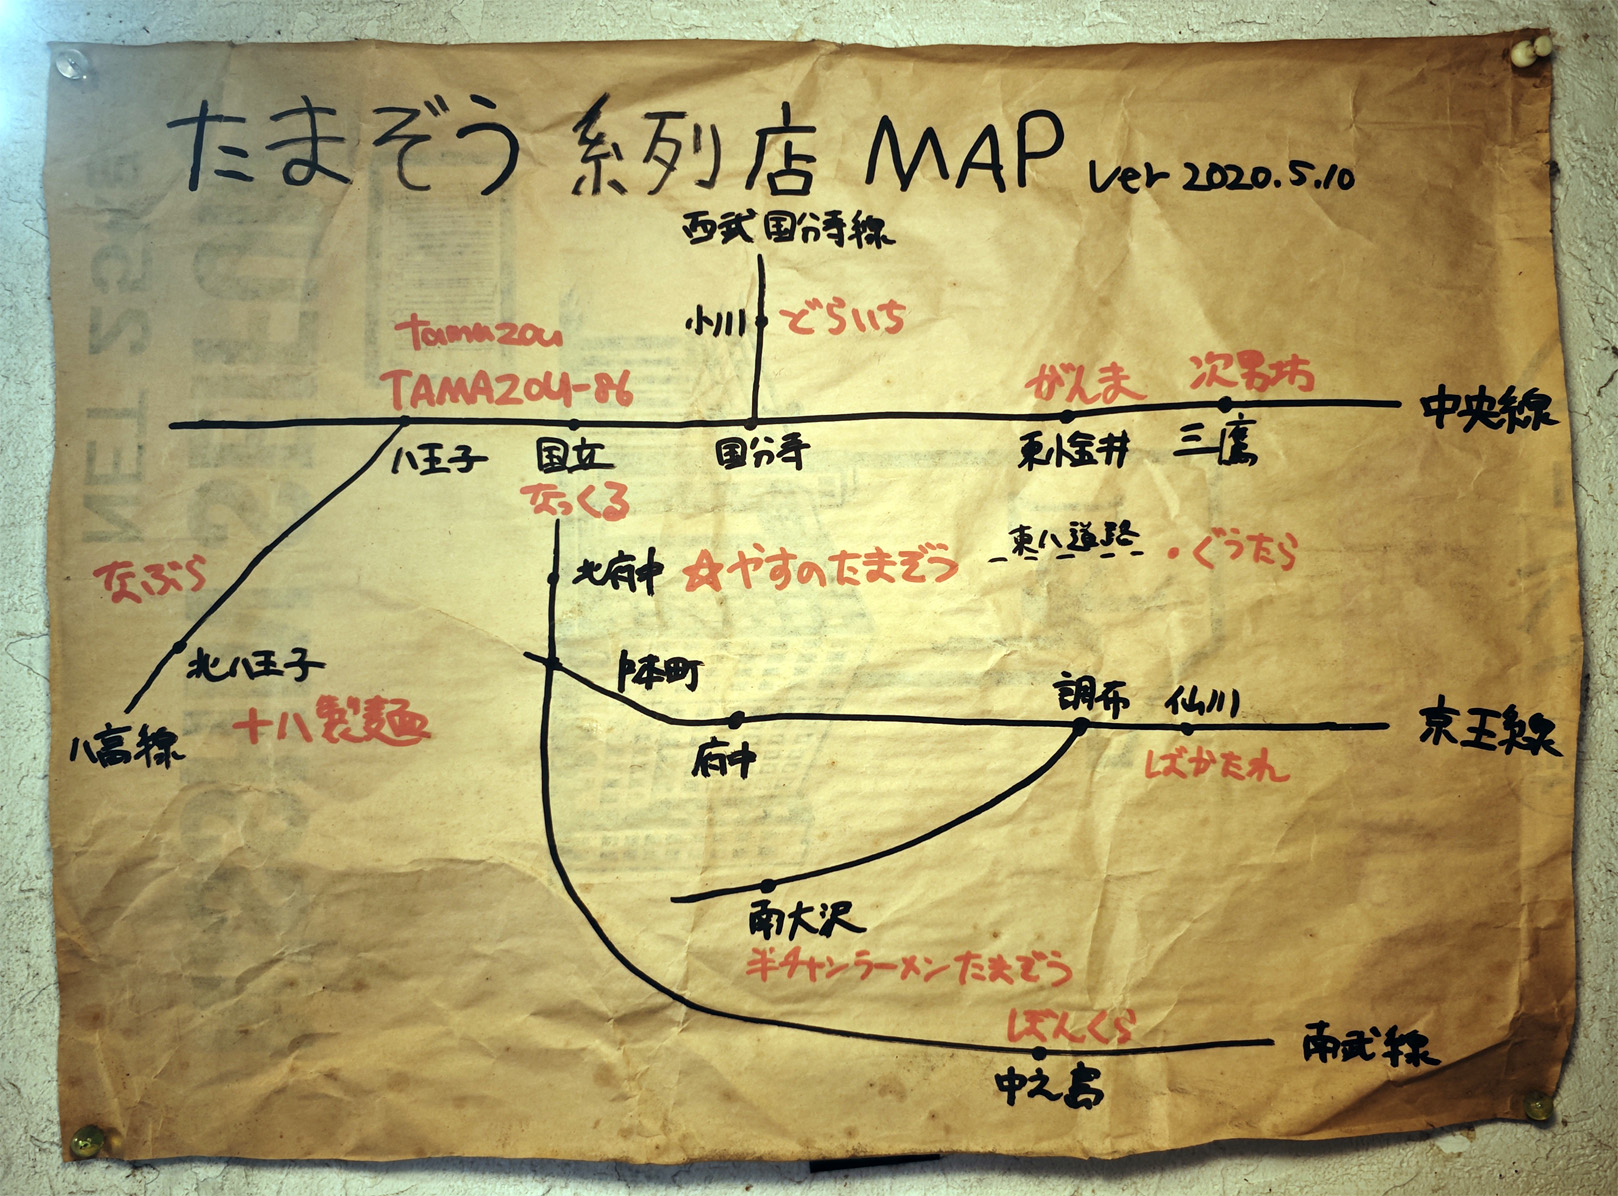 たまぞう 系列店 MAP ver 2020.5.10
西武国分寺線
小川 どらいち
tamazou
TAMAZOU-86
がんま 次男坊
中央線
八王子 国立 国分寺 東小金井 三鷹
なっくる
東八道路 ・ぐうたら
なぶら
北府中 ☆やすのたまぞう
北八王子
本町
調布 仙川
十八製麺
八高線
府中
京王線
ばかたれ
南大沢
半チャンラーメンたまぞう
ぼんくら
南武線
中之島